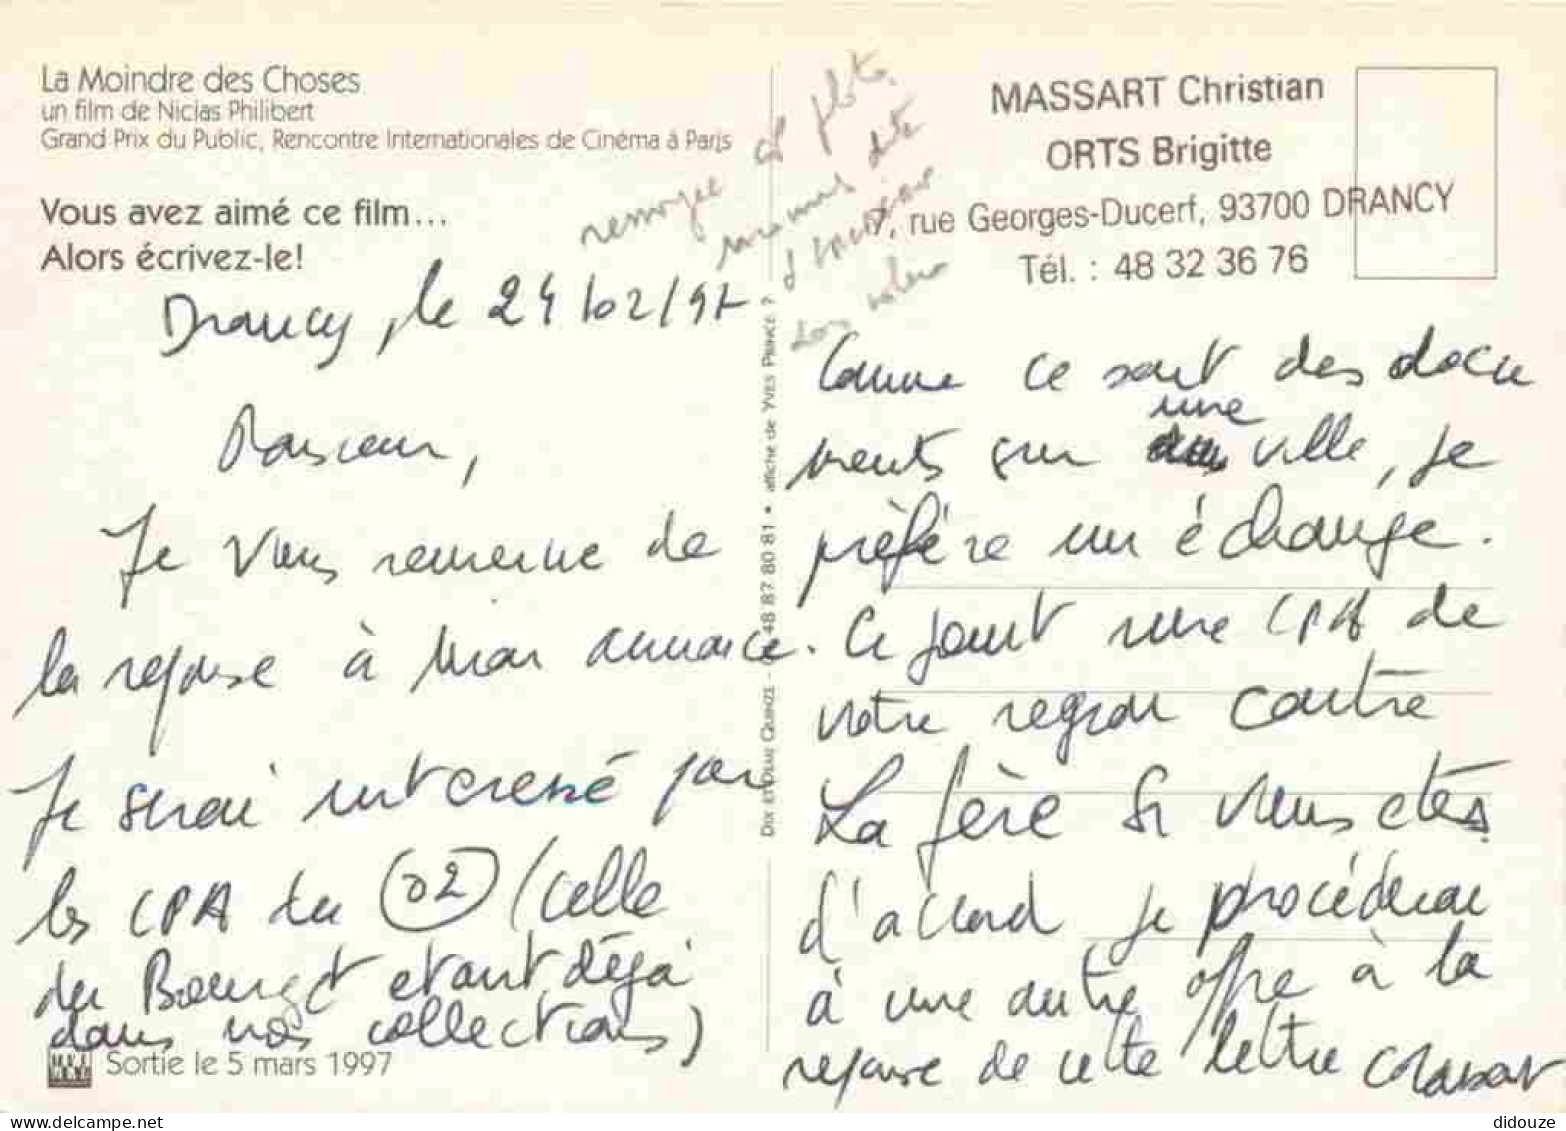 La Moindre des Choses
un film de Niclas Philibert
Grand Prix du Public, Rencontre Internationales de Cinéma à Paris
Vous avez aimé ce film...
Alors écrivez-le!
Drancy, le 24/02/97
Monsieur,
Je vous remercie de
la reponse à mon annonce.
Je serai interessé par
les CPA du 02 (celle
du Bourget etant déjà
dans nos collections)
Sortie le 5 mars 1997
DIX ET DEMI QUINZE - 48 87 80 81 • affiche de YVES PRINCE ?
MASSART Christian
ORTS Brigitte
7, rue Georges-Ducerf, 93700 DRANCY
Tél. : 48 32 36 76
Comme ce sont des docu
ments sur une ville, je
préfère un échange.
Ci joint une CPA de
votre region contre
La fère Si vous etes
d'accord je procéderai
à une autre offre à la
reponse de cette lettre CMassart
didouze